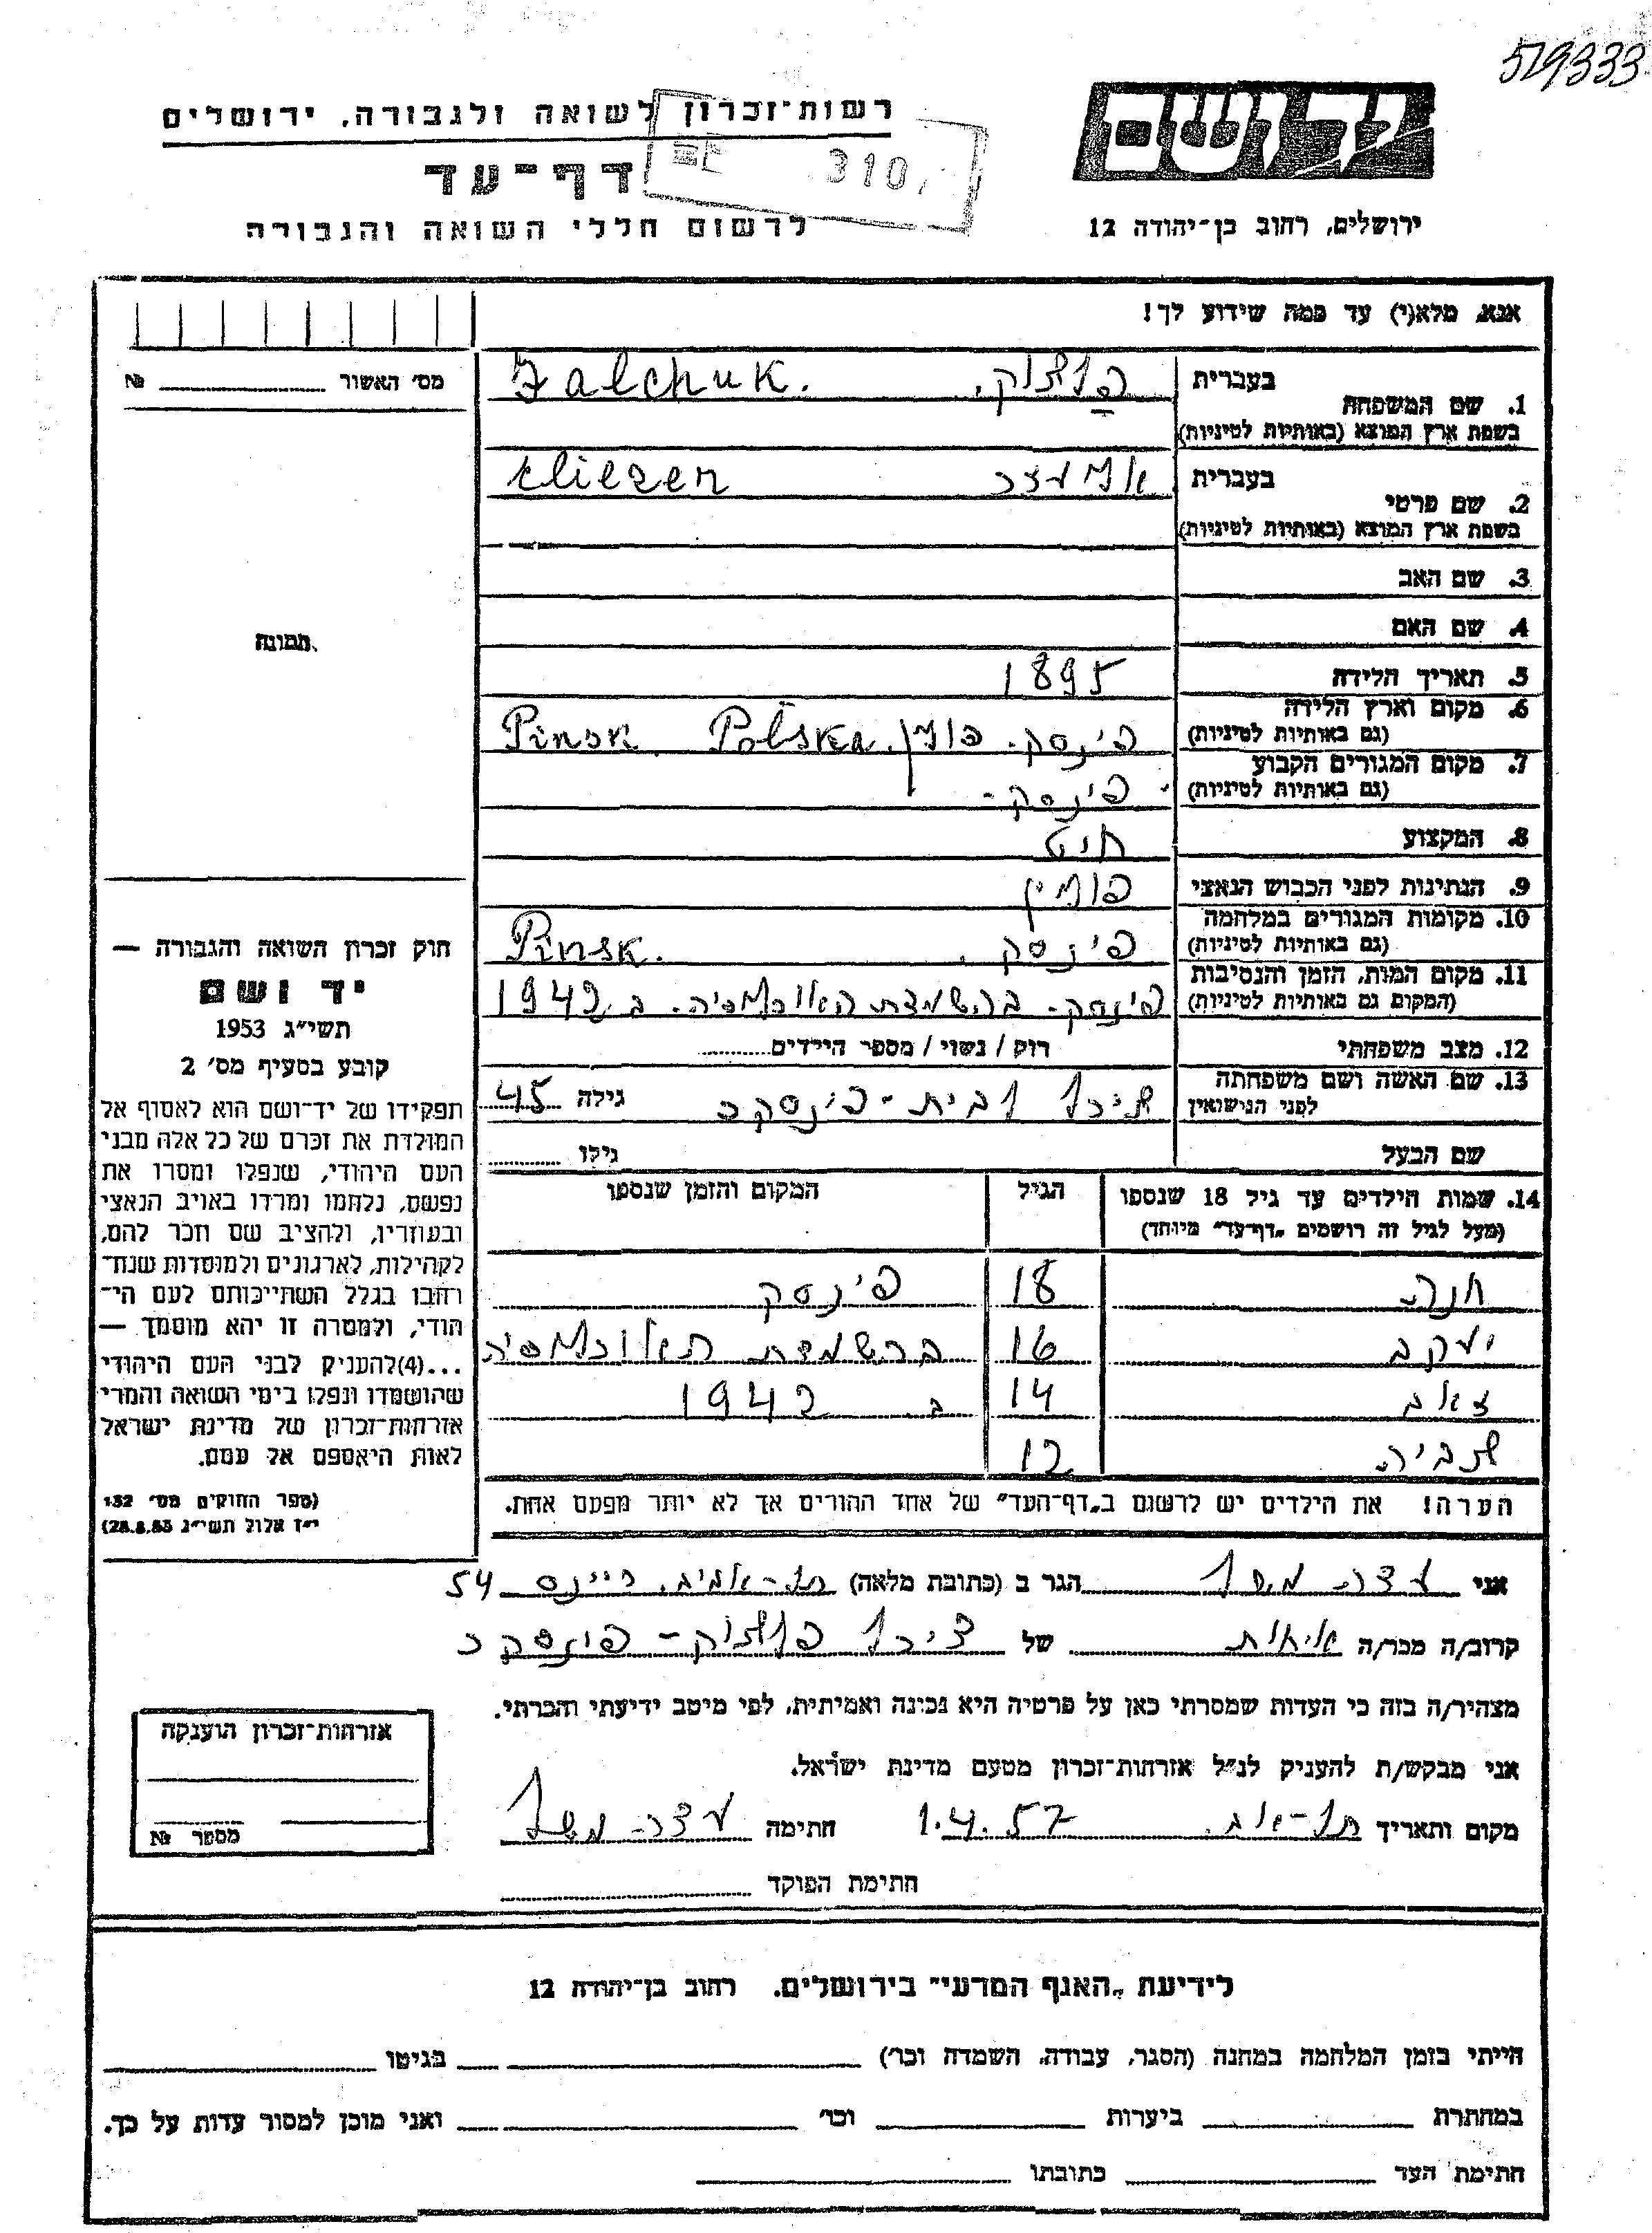 519333
יד ושם
רשות־זכרון לשואה ולגבורה, ירושלים
310
דף־עד
ירושלים, רחוב בן־יהודה 12
לרשום חללי השואה והגבורה
אנא, מלא(י) עד כמה שידוע לך!
מס' האשור № 
בעברית
פלצ'וק. Falchuk.
1. שם המשפחה
בשפת ארץ המוצא (באותיות לטיניות)
בעברית
אליעזר Eliezer
2. שם פרטי
בשפת ארץ המוצא (באותיות לטיניות)
3. שם האב
תמונה
4. שם האם
5. תאריך הלידה 1895
6. מקום וארץ הלידה
(גם באותיות לטיניות) פינסק. פולין. Pinsk. Polska
7. מקום המגורים הקבוע
(גם באותיות לטיניות) פינסק-
8. המקצוע חיט
9. הנתינות לפני הכבוש הנאצי פולין
10. מקומות המגורים במלחמה
(גם באותיות לטיניות) פינסק. Pinsk.
11. מקום המות, הזמן והנסיבות
(המקום גם באותיות לטיניות) פינסק. בהשמדת האוכלוסיה. ב 1942
12. מצב משפחתי רוק / נשוי / מספר הילדים
13. שם האשה ושם משפחתה
לפני הנישואין לבית - פינסקר גילה 45
שם הבעל גילו
14. שמות הילדים עד גיל 18 שנספו הגיל המקום והזמן שנספו
(מעל לגיל זה רושמים „דף־עד" מיוחד)
חנה 18 פינסק
יעקב 16 בהשמדת האוכלוסיה
זאב 14 ב 1942
צביה 12
הערה! את הילדים יש לרשום ב„דף־העד" של אחד ההורים אך לא יותר מפעם אחת.
חוק זכרון השואה והגבורה —
יד ושם
תשי"ג 1953
קובע בסעיף מס' 2
תפקידו של יד־ושם הוא לאסוף אל
המולדת את זכרם של כל אלה מבני
העם היהודי, שנפלו ומסרו את
נפשם, נלחמו ומרדו באויב הנאצי
ובעוזריו, ולהציב שם וזכר להם,
לקהילות, לארגונים ולמוסדות שנח־
רבו בגלל השתייכותם לעם הי־
הודי, ולמטרה זו יהא מוסמך —
...(4)להעניק לבני העם היהודי
שהושמדו ונפלו בימי השואה והמרי
אזרחות־זכרון של מדינת ישראל
לאות היאספם אל עמם.
(ספר החוקים מס' 132
י"ז אלול תשי"ג 28.8.53)
אני עזרה הגר ב (כתובת מלאה) תל-אביב. ריינס 54
קרוב/ה מכר/ה של פלצ'וק - פינסקר
מצהיר/ה בזה כי העדות שמסרתי כאן על פרטיה היא נכונה ואמיתית, לפי מיטב ידיעתי והכרתי.
אני מבקש/ת להעניק לנ"ל אזרחות־זכרון מטעם מדינת ישראל.
מקום ותאריך תל-אביב. 1.4.57 חתימה עזרה
חתימת הפוקד
אזרחות־זכרון הוענקה
מספר №
לידיעת „האגף המדעי" בירושלים. רחוב בן־יהודה 12
הייתי בזמן המלחמה במחנה (הסגר, עבודה, השמדה וכו') בגיטו
במחתרת ביערות וכו' ואני מוכן למסור עדות על כך.
חתימת העד כתובתו